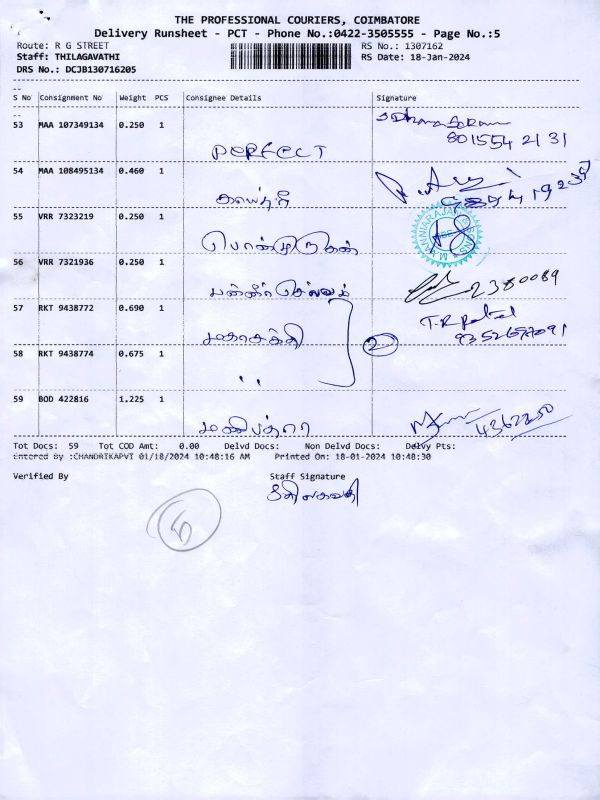 THE PROFESSIONAL COURIERS, COIMBATORE
Delivery Runsheet - PCT - Phone No.:0422-3505555 - Page No.:5
Route: R G STREET RS No.: 1307162
Staff: THILAGAVATHI RS Date: 18-Jan-2024
DRS No.: DCJB130716205
S No Consignment No Weight PCS Consignee Details Signature
53 MAA 107349134 0.250 1
801554 2131
PERFECT
54 MAA 108495134 0.460 1
காயத்ரி
55 VRR 7323219 0.250 1
பொன்முருகன்
56 VRR 7321936 0.250 1
பன்னீர்செல்வம் 2380089
57 RKT 9438772 0.690 1
T.R Patel
மகாசக்தி 2
58 RKT 9438774 0.675 1
" 
59 BOD 422816 1.225 1
மணிபத்ரா 4362250
Tot Docs: 59 Tot COD Amt: 0.00 Delvd Docs: Non Delvd Docs: Delvy Pts:
Entered By :CHANDRIKAPVT 01/18/2024 10:48:16 AM Printed On: 18-01-2024 10:48:30
Verified By Staff Signature
5